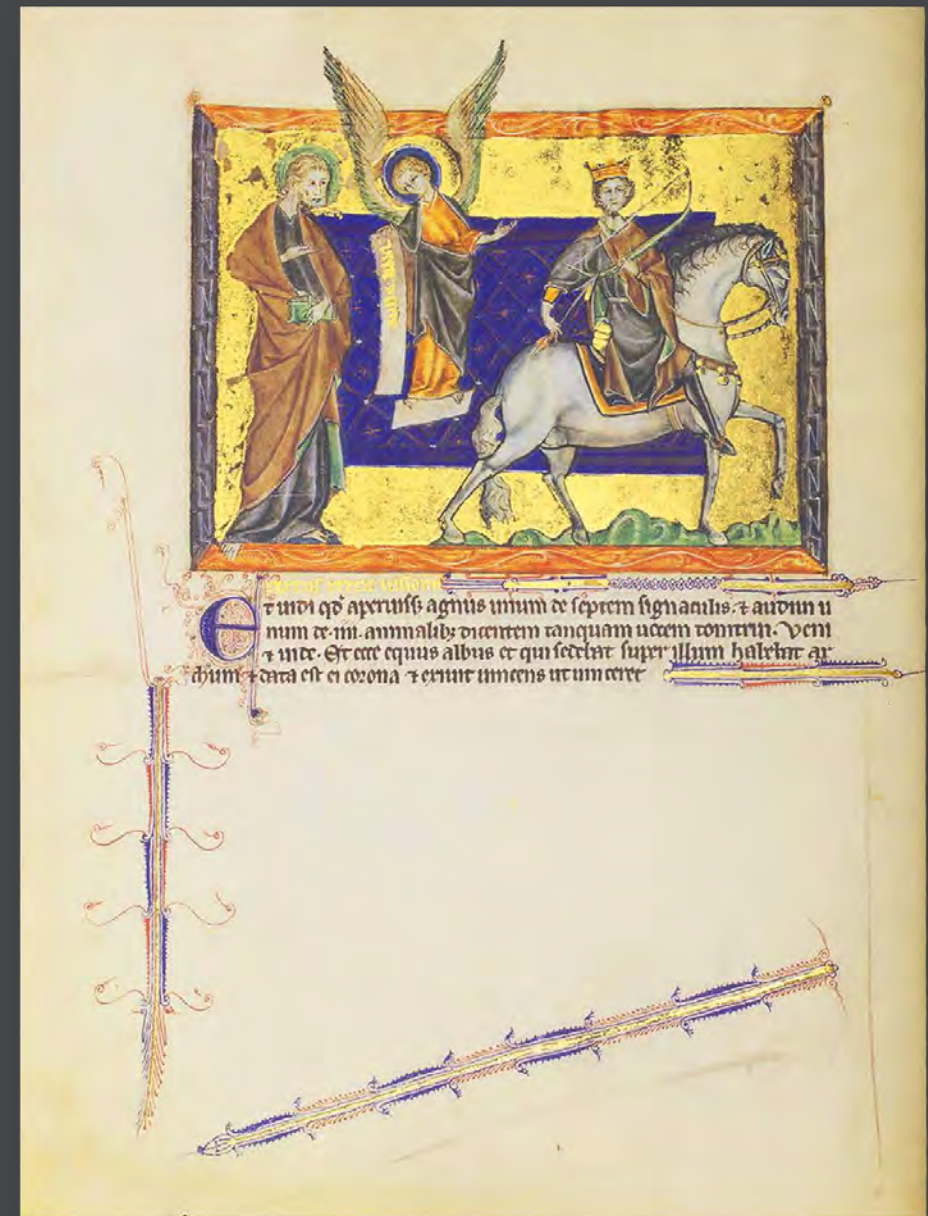 Et uidi qd aperuiss; agnus unum de septem signaculis. ⁊ audiui u
num de .iiii. animalib; dicentem tanquam uocem tonitrui. Veni
⁊ uide. Et ecce equus albus et qui sedebat super illum habebat ar
chum ⁊ data est ei corona ⁊ exiuit uincens ut uinceret